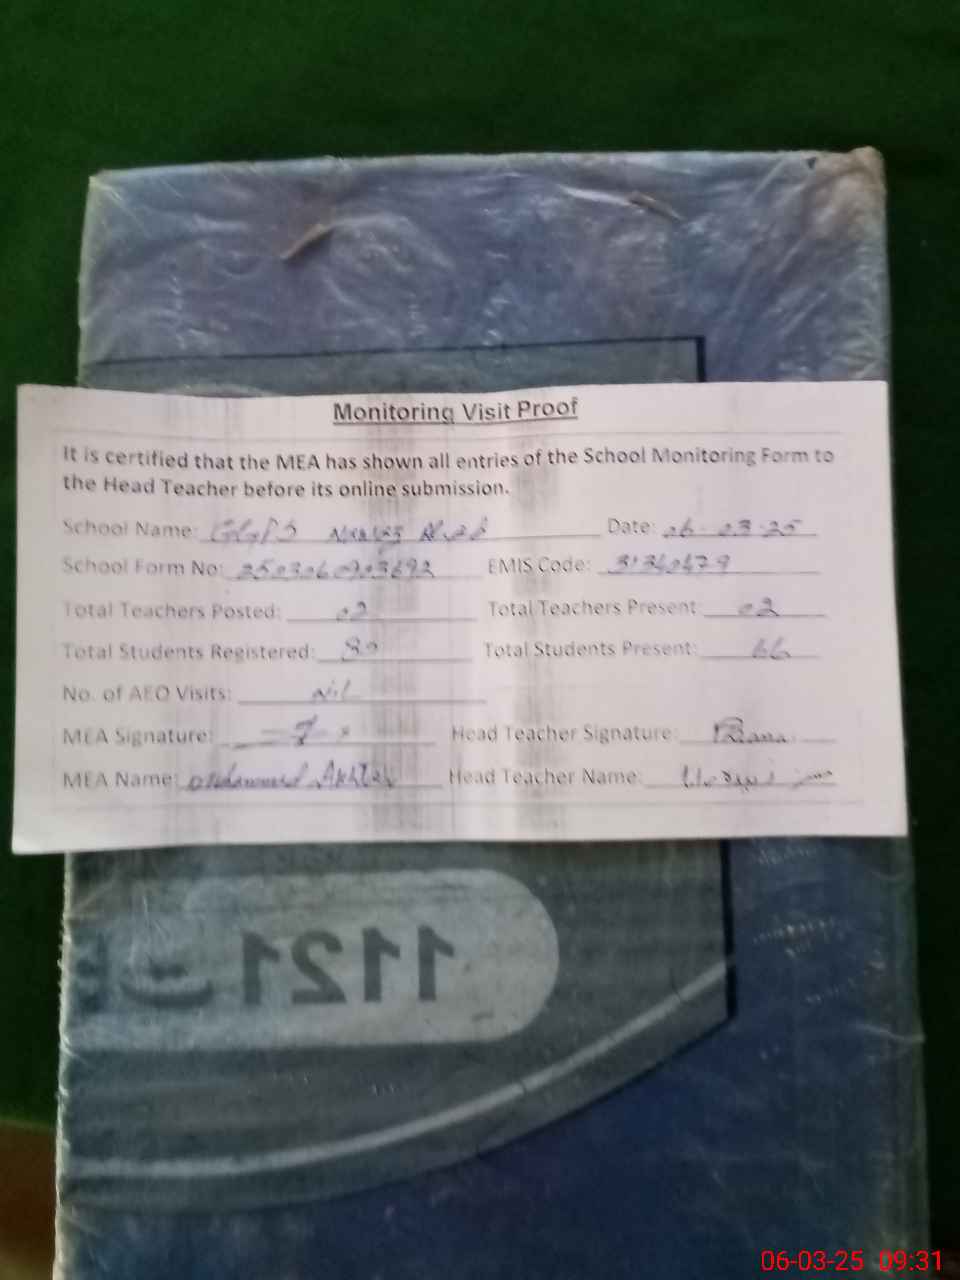 Monitoring Visit Proof
It is certified that the MEA has shown all entries of the School Monitoring Form to
the Head Teacher before its online submission.
School Name: GGPS Date: 06-03-25
School Form No: EMIS Code:
Total Teachers Posted: 02 Total Teachers Present: 02
Total Students Registered: Total Students Present: 66
No. of AEO Visits: Nil
MEA Signature: Head Teacher Signature:
MEA Name: Muhammad Akhtar Head Teacher Name:
1121
06-03-25 09:31